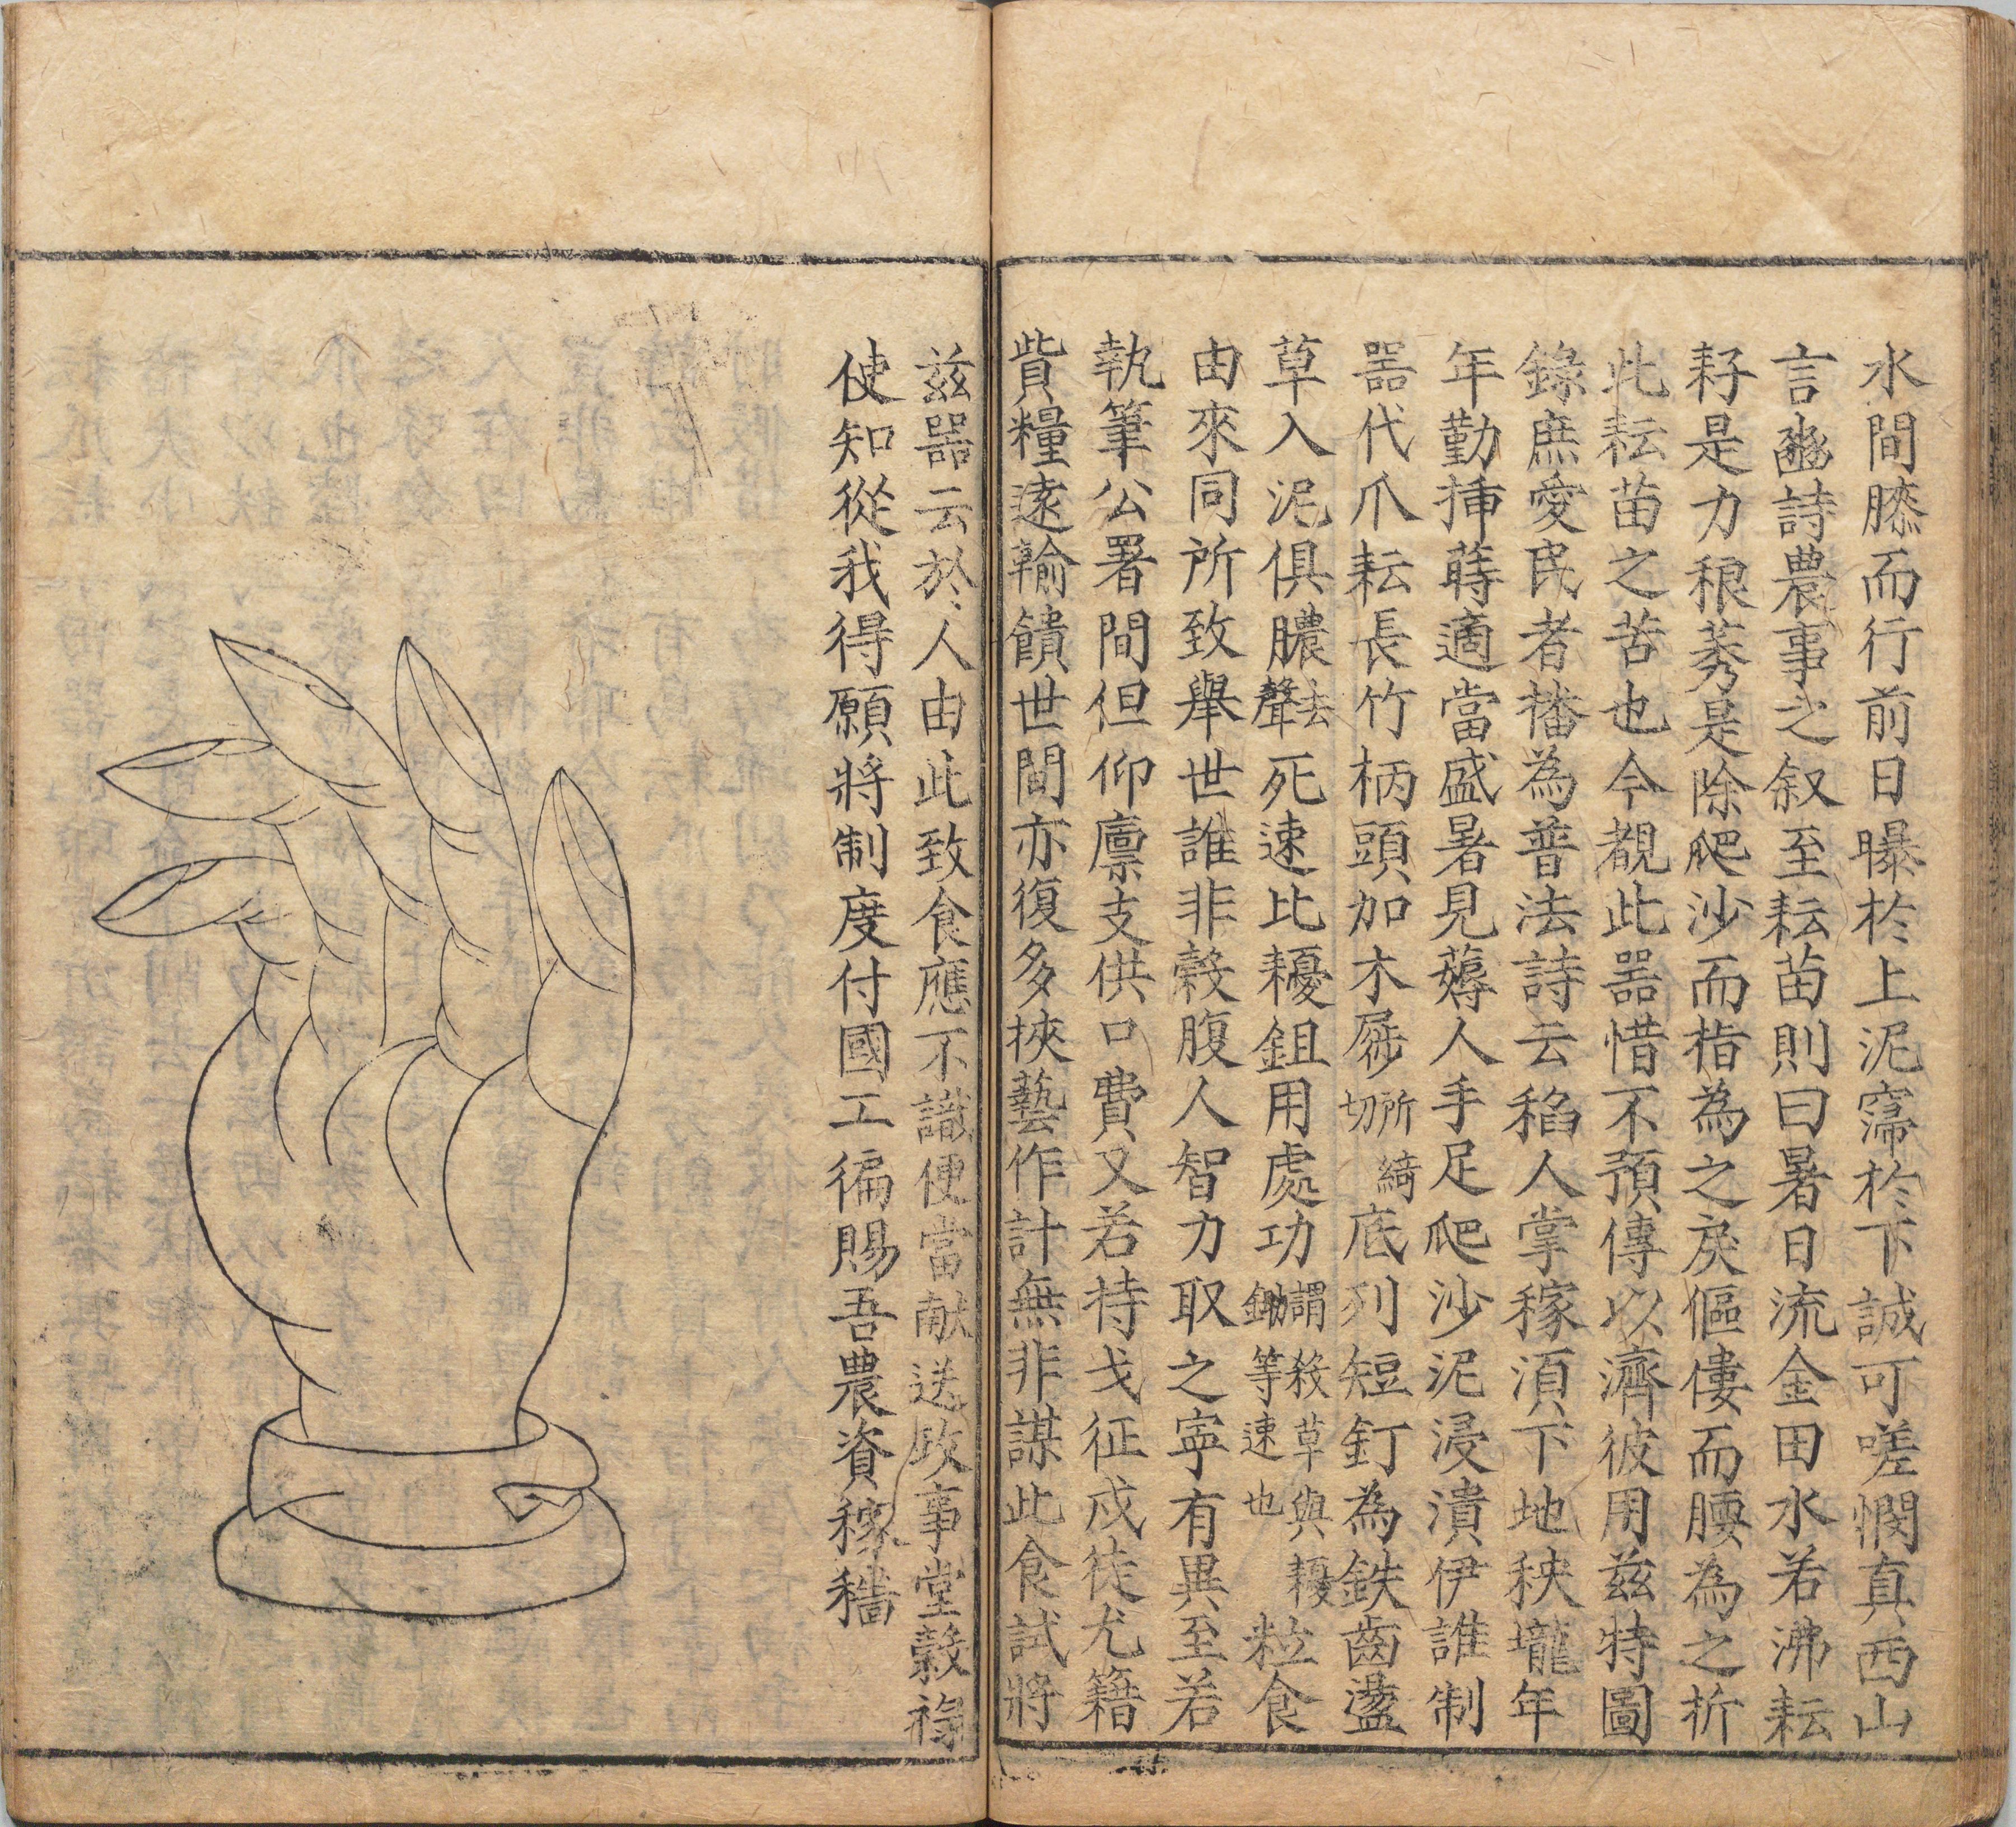 水間膝而行前日曝於上泥霈於下誠可嗟憫真西山
言豳詩農事之叙至耘苗則曰暑日流金田水若沸耘
耔是力稂莠是除爬沙而指為之戾傴僂而腰為之折
此耘苗之苦也今覩此噐惜不預傳以濟彼用兹特圖
錄庶愛民者播為普法詩云稻人掌稼湏下地秧壠年
年勤揷蒔適當盛暑見薅人手足爬沙泥浸漬伊誰制
噐代爪耘長竹柄頭加木屐所綺切底列短釘為鉄齒盪
草入泥俱膿去聲死速比耰鉏用處功謂殺草與耰鋤等速也粒食
由來同所致舉世誰非穀腹人智力取之寧有異至若
執筆公署間但仰廪支供口費又若持戈征戍徒尤籍
貲糧遠輸饋世間亦復多挾藝作計無非謀此食試將
兹噐云於人由此致食應不識便當献送政事堂穀祿
使知從我得願將制度付國工徧賜吾農資稼穡